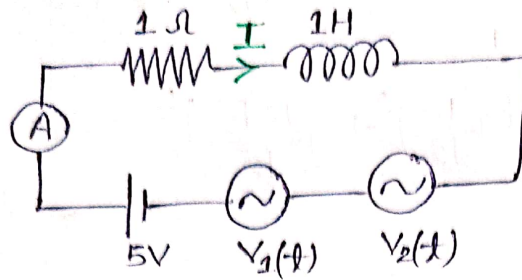 1 Ω
I
1H
A
5V
V₁(t)
V₂(t)